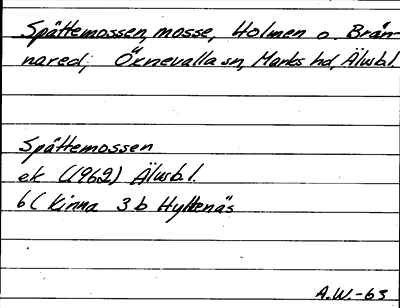 Spättemossen, mosse, Holmen o. Brän-
nared; Öxnevalla sn, Marks hd, Älvsb.l.
Spättemossen
ek (1962) Älvsb.l.
6C Kinna 3b Hyltenäs
A.W.-63